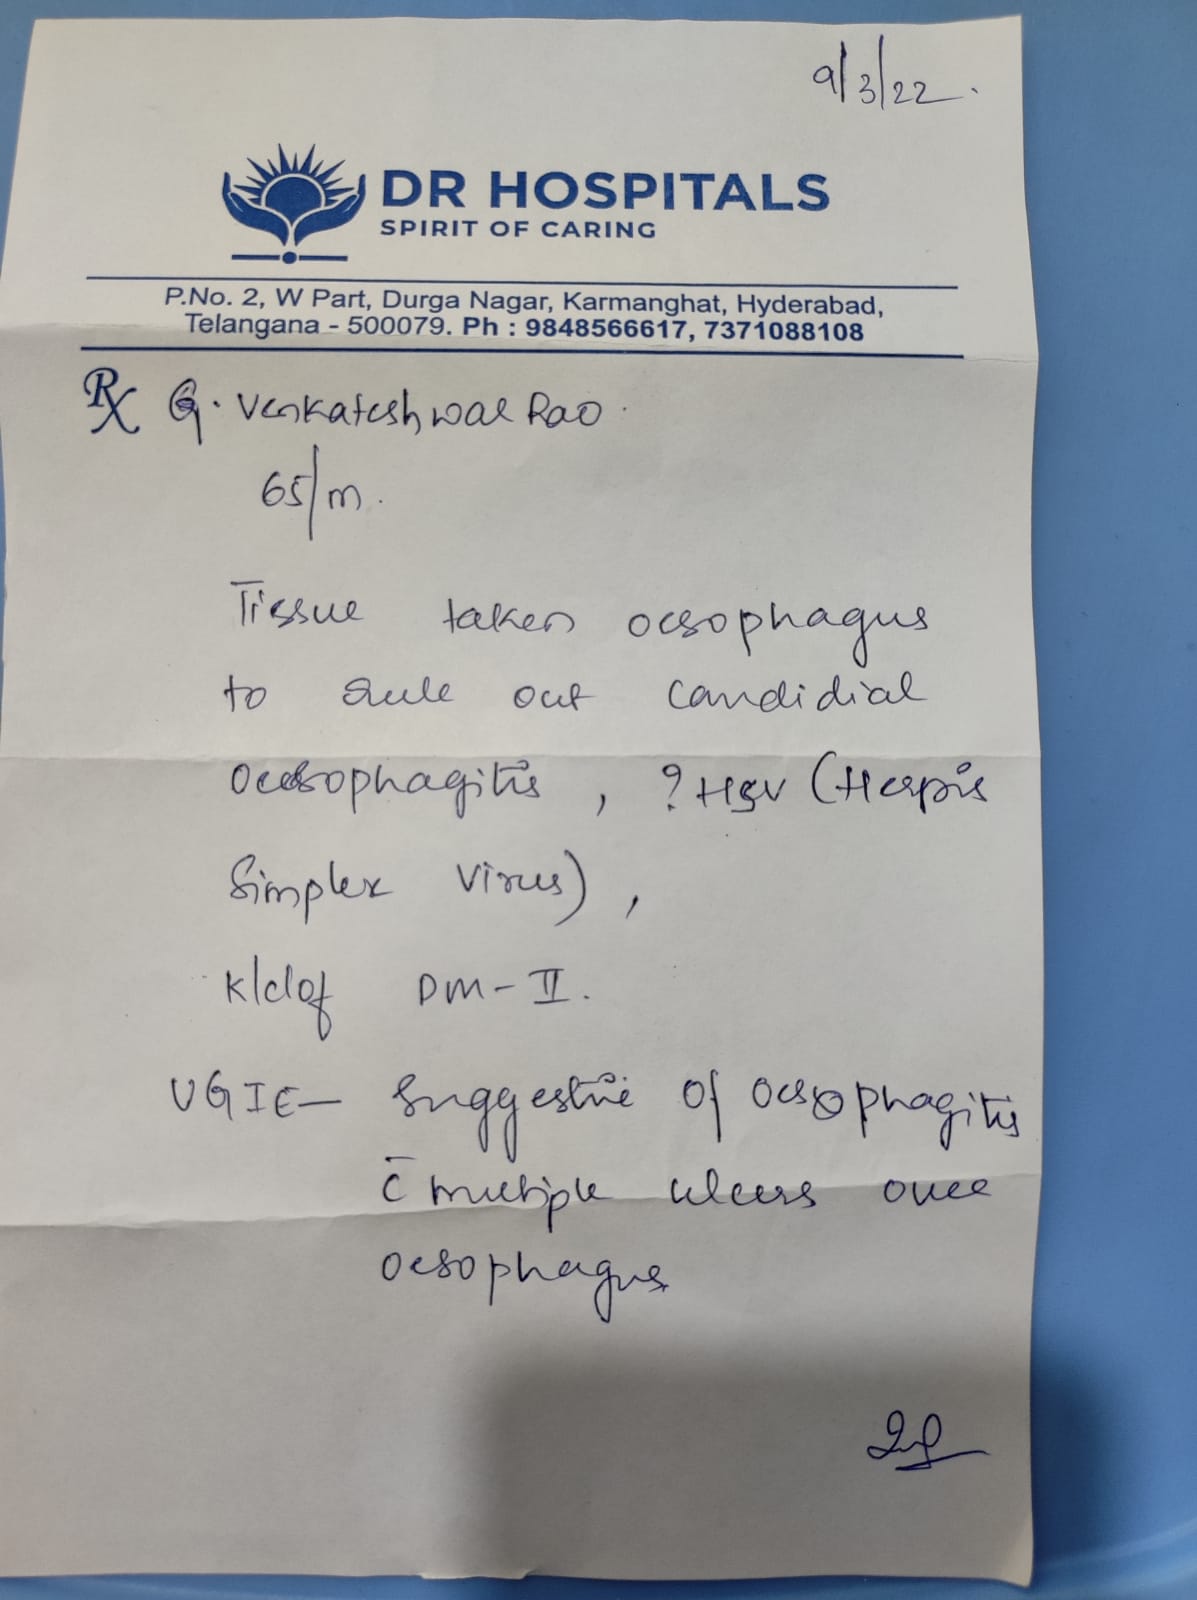 9/3/22.
DR HOSPITALS
SPIRIT OF CARING
P.No. 2, W Part, Durga Nagar, Karmanghat, Hyderabad,
Telangana - 500079. Ph : 9848566617, 7371088108
Rx G. Venkateshwar Rao.
65/m.
Tissue taken oesophagus
to rule out candidial
oesophagitis, ? HSV (Herpis
Simplex Virus),
K/c/of DM-II.
UGIE- Suggestive of oesophagitis
c̄ multiple ulcers over
oesophagus